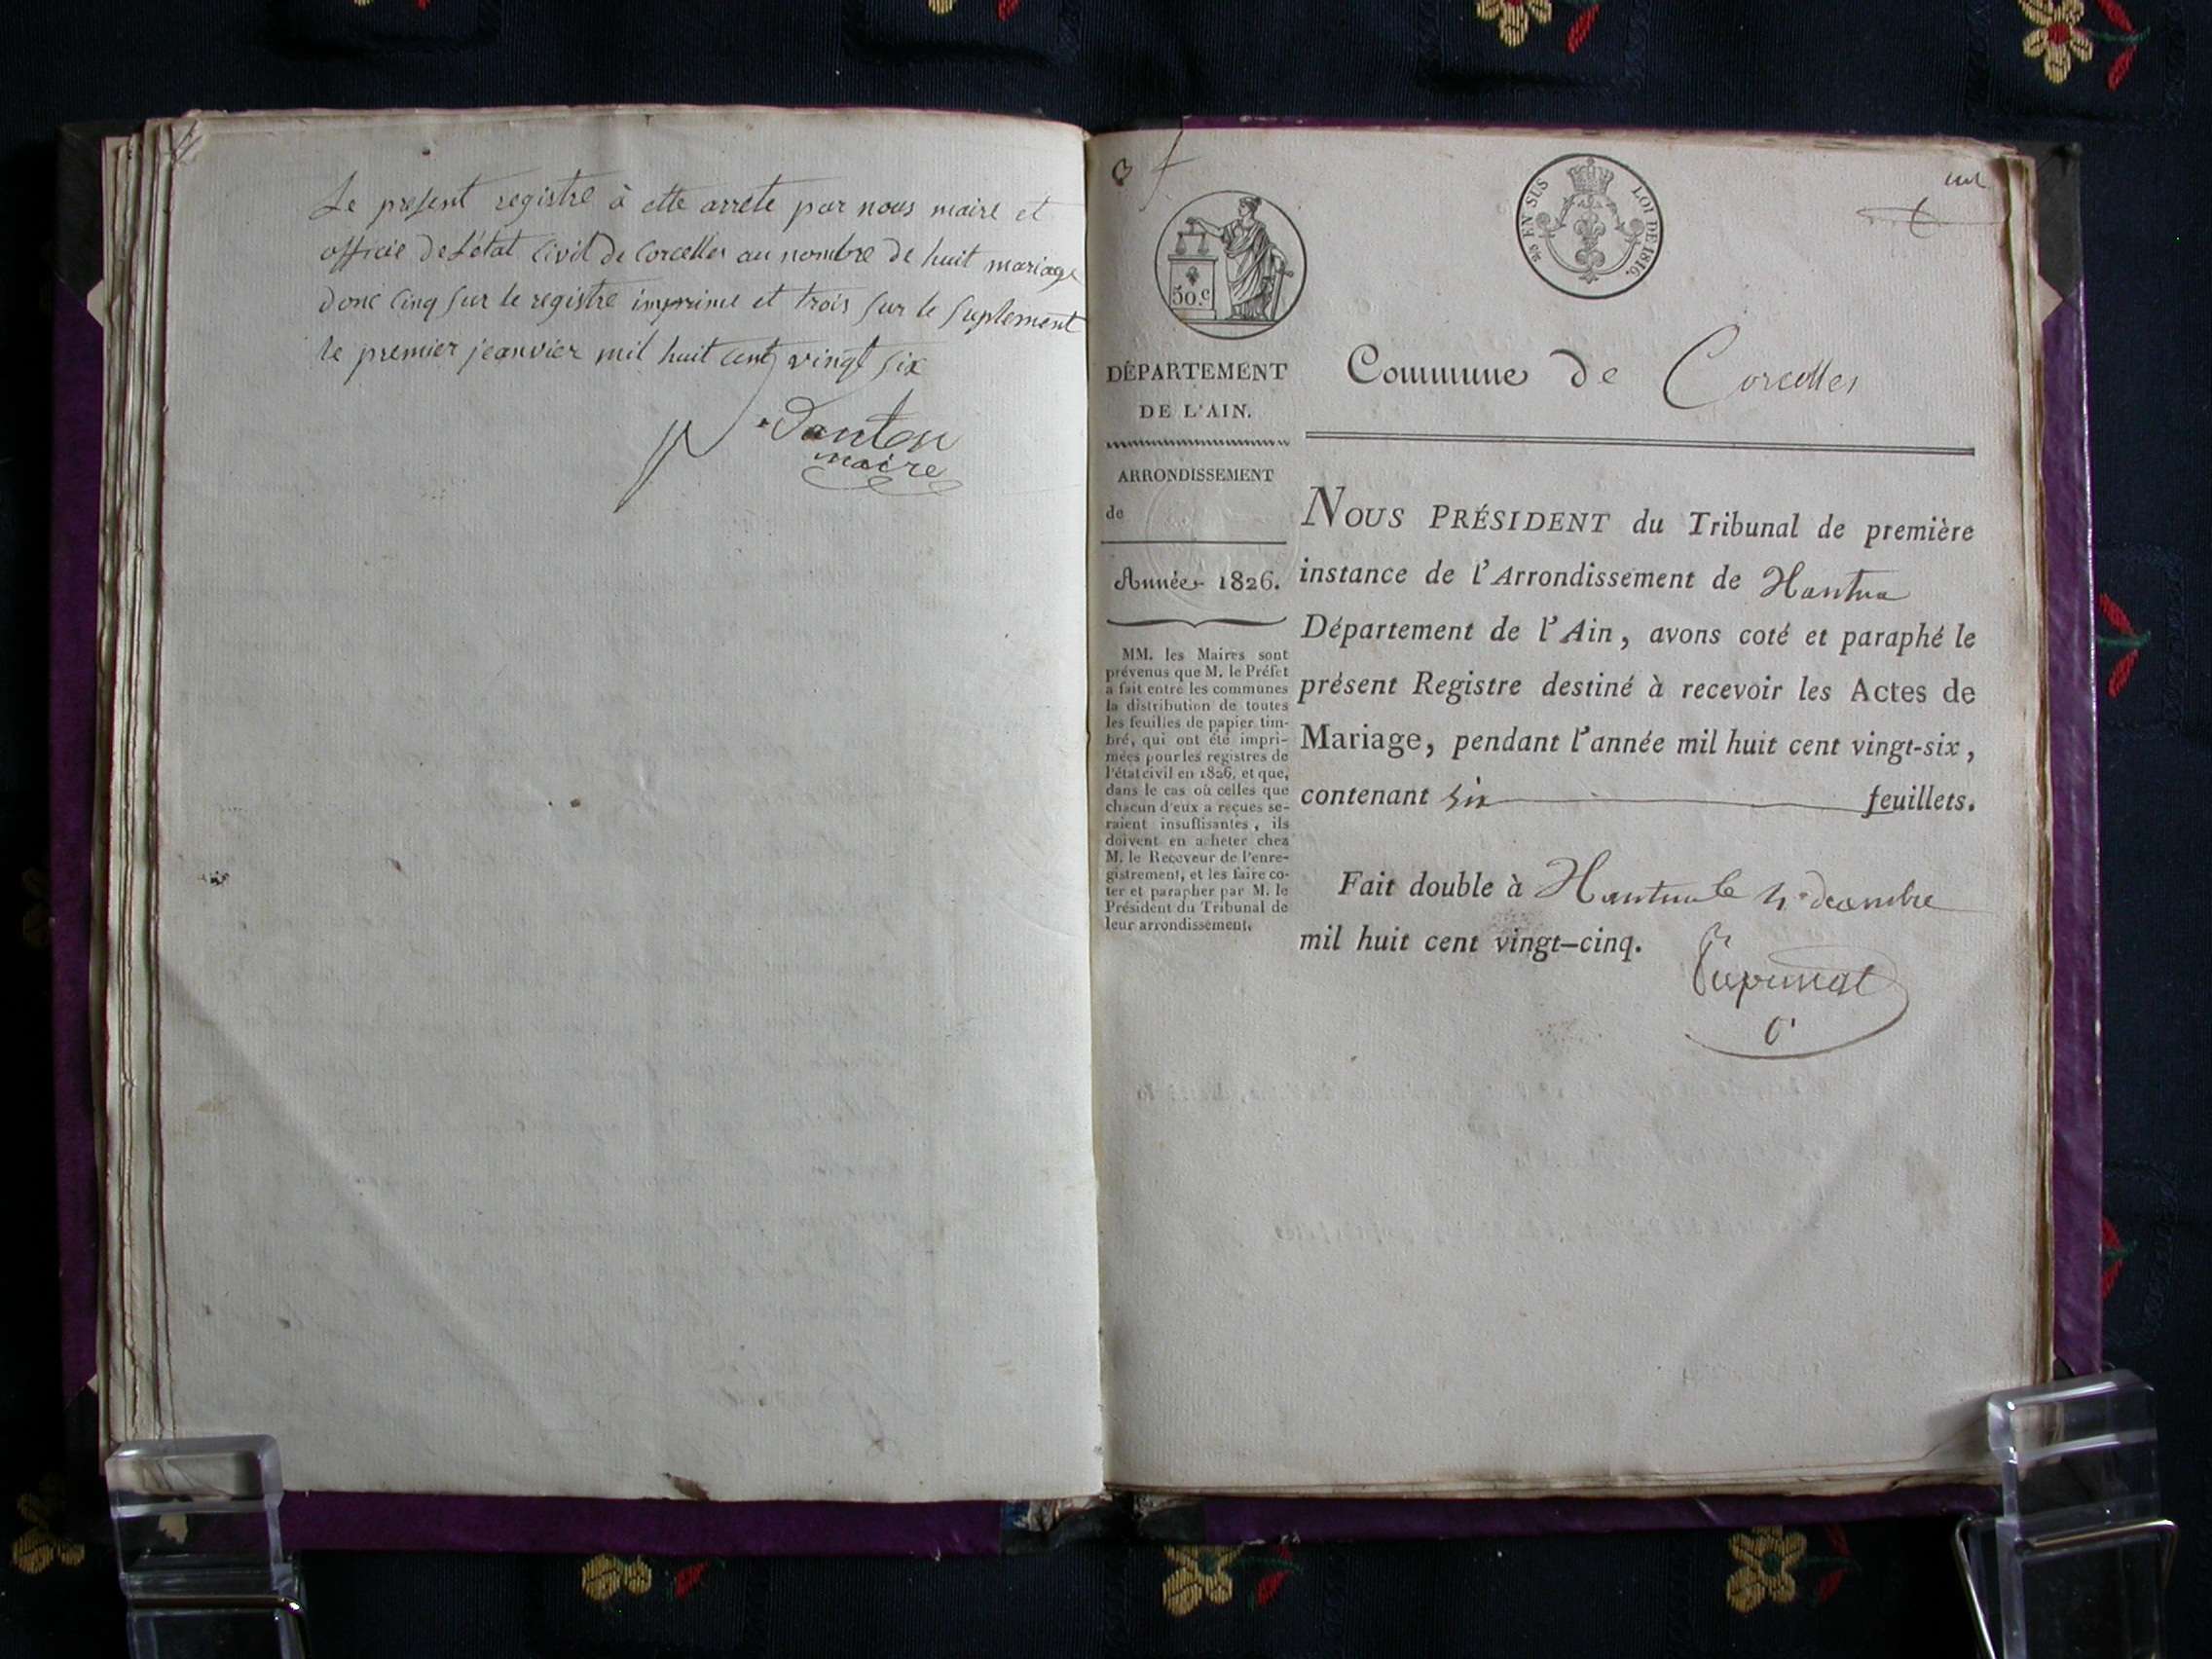 Le present registre à ette arrete par nous maire et
officie de L'état Civil de Corcelles au nombre de huit mariage
donc cinq sur le registre imprime et trois sur le suplement
le premier jeanvier mil huit cent vingt six
maire
50.c
4/5 EN SUS LOI DE 1816.
DÉPARTEMENT
DE L'AIN.
Commune de Corcelles
ARRONDISSEMENT
de
Année 1826.
MM. les Maires sont
prévenus que M. le Préfet
a fait entre les communes
la distribution de toutes
les feuilles de papier tim-
bré, qui ont été impri-
mées pour les registres de
l'état civil en 1826, et que,
dans le cas où celles que
chacun d'eux a reçues se-
raient insuffisantes, ils
doivent en acheter chez
M. le Receveur de l'enre-
gistrement, et les faire co-
ter et parapher par M. le
Président du Tribunal de
leur arrondissement.
NOUS PRÉSIDENT du Tribunal de première
instance de l'Arrondissement de Nantua
Département de l'Ain, avons coté et paraphé le
présent Registre destiné à recevoir les Actes de
Mariage, pendant l'année mil huit cent vingt-six,
contenant six feuillets.
Fait double à Nantua le decembre
mil huit cent vingt-cinq.